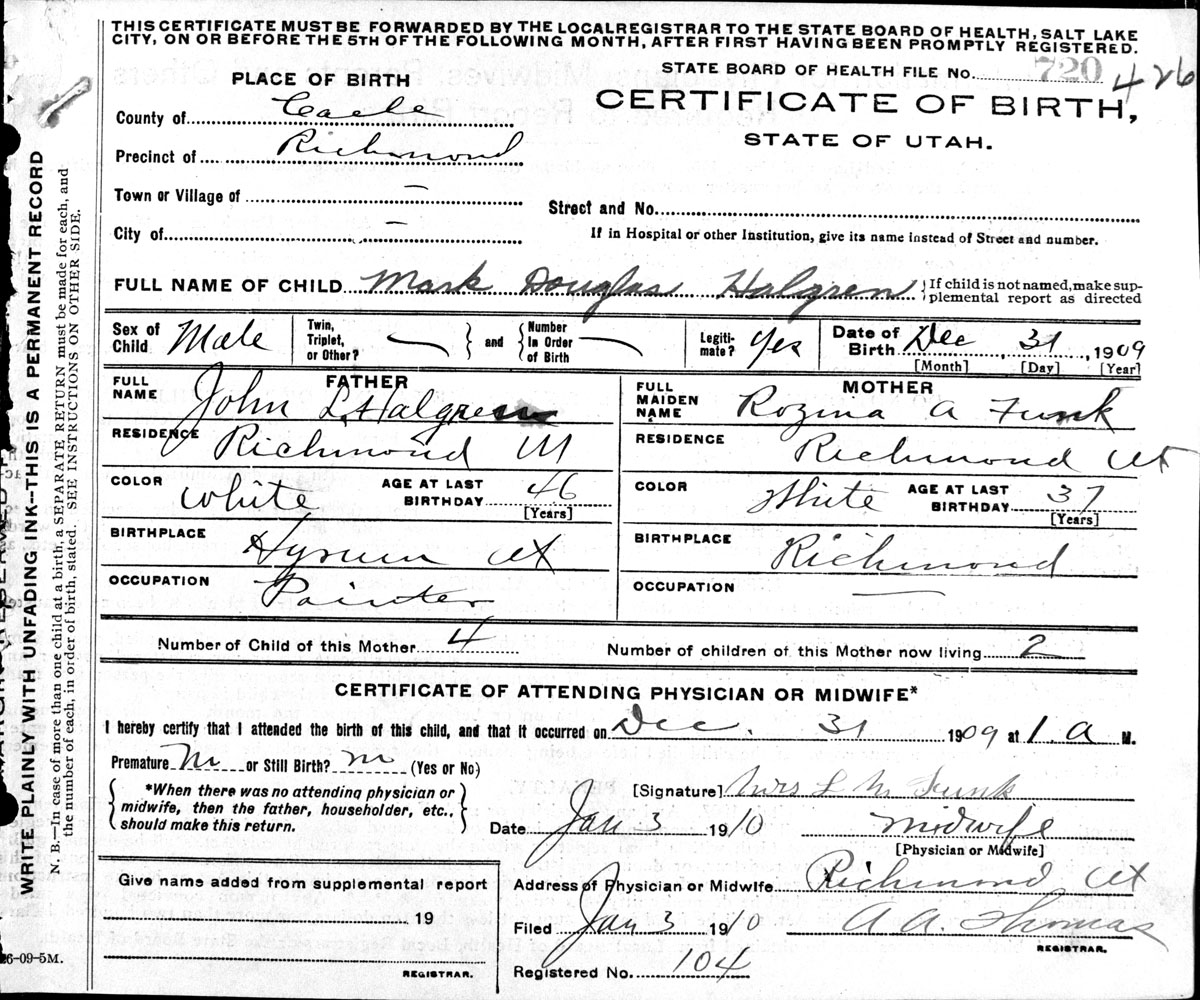 THIS CERTIFICATE MUST BE FORWARDED BY THE LOCAL REGISTRAR TO THE STATE BOARD OF HEALTH, SALT LAKE
CITY, ON OR BEFORE THE 5TH OF THE FOLLOWING MONTH, AFTER FIRST HAVING BEEN PROMPTLY REGISTERED.
STATE BOARD OF HEALTH FILE No. 720 426
PLACE OF BIRTH
CERTIFICATE OF BIRTH,
STATE OF UTAH.
County of Cache
Precinct of Richmond
Town or Village of —
Street and No.
City of —
If in Hospital or other Institution, give its name instead of Street and number.
FULL NAME OF CHILD Mark Douglas Halgren } If child is not named, make sup-
plemental report as directed
Sex of Child Male
Twin, Triplet, or Other? — } and { Number In Order of Birth —
Legiti-mate? Yes
Date of Birth Dec 31, 1909
[Month] [Day] [Year]
FATHER
FULL NAME John L. Halgren
RESIDENCE Richmond Ut
COLOR White AGE AT LAST BIRTHDAY 46
[Years]
BIRTHPLACE Hyrum Ut
OCCUPATION Painter
MOTHER
FULL MAIDEN NAME Rozina A Funk
RESIDENCE Richmond Ut
COLOR White AGE AT LAST BIRTHDAY 37
[Years]
BIRTHPLACE Richmond
OCCUPATION —
Number of Child of this Mother 4 Number of children of this Mother now living 2
CERTIFICATE OF ATTENDING PHYSICIAN OR MIDWIFE*
I hereby certify that I attended the birth of this child, and that it occurred on Dec. 31 1909 at 1. A M.
Premature or Still Birth? (Yes or No)
{ *When there was no attending physician or
midwife, then the father, householder, etc.,
should make this return. }
[Signature] Mrs L M Funk
Date Jan 3 1910 Midwife
[Physician or Midwife]
Give name added from supplemental report
19
REGISTRAR.
Address of Physician or Midwife Richmond Ut
Filed Jan 3 1910 A A. Thomas
REGISTRAR.
Registered No. 104
26-09-5M.
WRITE PLAINLY WITH UNFADING INK--THIS IS A PERMANENT RECORD
N. B.—In case of more than one child at a birth, a SEPARATE RETURN must be made for each, and
the number of each, in order of birth, stated. SEE INSTRUCTIONS ON OTHER SIDE.